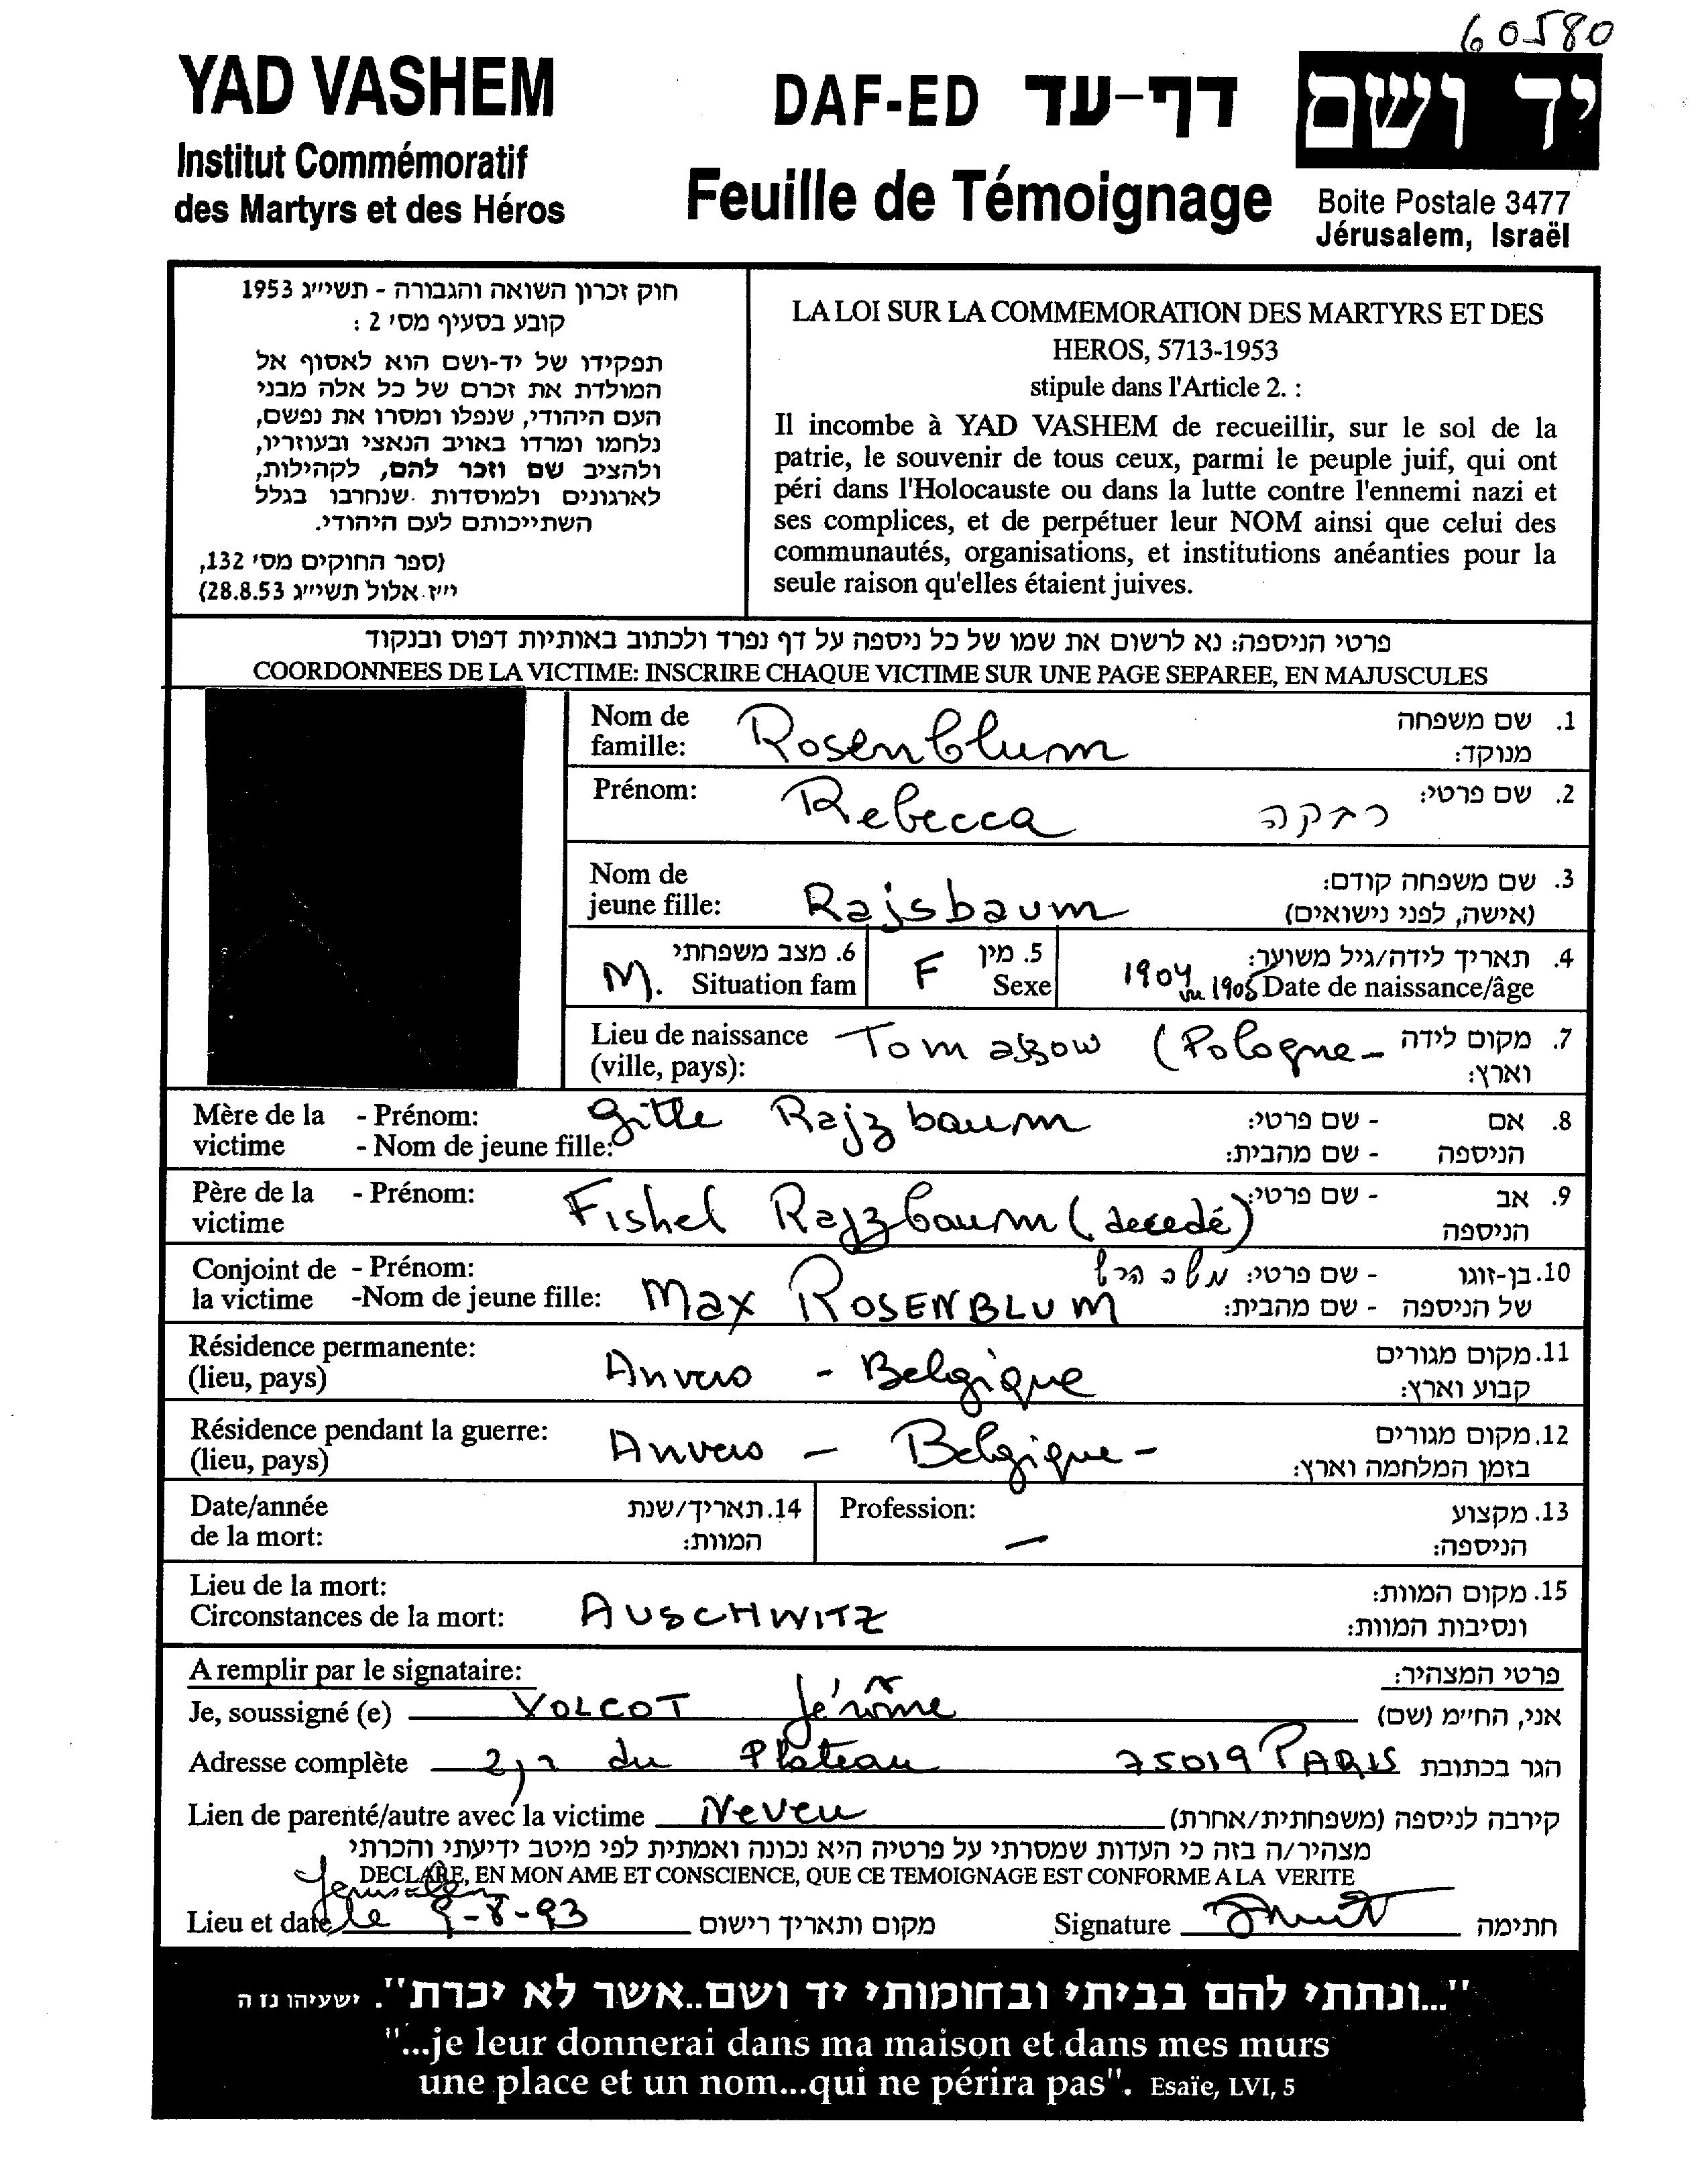 60580
YAD VASHEM
Institut Commémoratif
des Martyrs et des Héros
DAF-ED דף-עד
Feuille de Témoignage
יד ושם
Boite Postale 3477
Jérusalem, Israël
חוק זכרון השואה והגבורה - תשי״ג 1953
קובע בסעיף מס׳ 2 :
תפקידו של יד-ושם הוא לאסוף אל
המולדת את זכרם של כל אלה מבני
העם היהודי, שנפלו ומסרו את נפשם,
נלחמו ומרדו באויב הנאצי ובעוזריו,
ולהציב שם וזכר להם, לקהילות,
לארגונים ולמוסדות שנחרבו בגלל
השתייכותם לעם היהודי.
(ספר החוקים מס׳ 132,
י״ז אלול תשי״ג 28.8.53)
LA LOI SUR LA COMMEMORATION DES MARTYRS ET DES
HEROS, 5713-1953
stipule dans l'Article 2. :
Il incombe à YAD VASHEM de recueillir, sur le sol de la
patrie, le souvenir de tous ceux, parmi le peuple juif, qui ont
péri dans l'Holocauste ou dans la lutte contre l'ennemi nazi et
ses complices, et de perpétuer leur NOM ainsi que celui des
communautés, organisations, et institutions anéanties pour la
seule raison qu'elles étaient juives.
פרטי הניספה: נא לרשום את שמו של כל ניספה על דף נפרד ולכתוב באותיות דפוס ובנקוד
COORDONNEES DE LA VICTIME: INSCRIRE CHAQUE VICTIME SUR UNE PAGE SEPAREE, EN MAJUSCULES
Nom de Rosenblum 1. שם משפחה
famille: מנוקד:
Prénom: Rebecca רבקה 2. שם פרטי:
Nom de 3. שם משפחה קודם:
jeune fille: Rajsbaum (אישה, לפני נישואים)
6. מצב משפחתי 5. מין 4. תאריך לידה/גיל משוער:
M. Situation fam F Sexe 1904 ou 1905 Date de naissance/âge
Lieu de naissance Tomaszow (Pologne- 7. מקום לידה
(ville, pays): וארץ:
Mère de la - Prénom: Gitle Rajzbaum - שם פרטי: 8. אם
victime - Nom de jeune fille: - שם מהבית: הניספה
Père de la - Prénom: Fishel Rajzbaum (decedé) - שם פרטי: 9. אב
victime הניספה
Conjoint de - Prénom: משה הרש - שם פרטי: 10. בן-זוגו
la victime -Nom de jeune fille: Max ROSENBLUM - שם מהבית: של הניספה
Résidence permanente: 11. מקום מגורים
(lieu, pays) Anvers - Belgique קבוע וארץ:
Résidence pendant la guerre: 12. מקום מגורים
(lieu, pays) Anvers - Belgique- בזמן המלחמה וארץ:
Date/année 14. תאריך/שנת Profession: 13. מקצוע
de la mort: המוות: — הניספה:
Lieu de la mort: 15. מקום המוות:
Circonstances de la mort: AUSCHWITZ ונסיבות המוות:
A remplir par le signataire: פרטי המצהיר:
Je, soussigné (e) VOLCOT Jérôme אני, הח״מ (שם)
Adresse complète 2, r du Plateau 75019 PARIS הגר בכתובת
Lien de parenté/autre avec la victime Neveu קירבה לניספה (משפחתית/אחרת)
מצהיר/ה בזה כי העדות שמסרתי על פרטיה היא נכונה ואמתית לפי מיטב ידיעתי והכרתי
DECLARE, EN MON AME ET CONSCIENCE, QUE CE TEMOIGNAGE EST CONFORME A LA VERITE
Jerusalem
Lieu et date le 9-8-93 מקום ותאריך רישום Signature חתימה
"...ונתתי להם בביתי ובחומותי יד ושם..אשר לא יכרת". ישעיהו נז ה
"...je leur donnerai dans ma maison et dans mes murs
une place et un nom...qui ne périra pas". Esaïe, LVI, 5